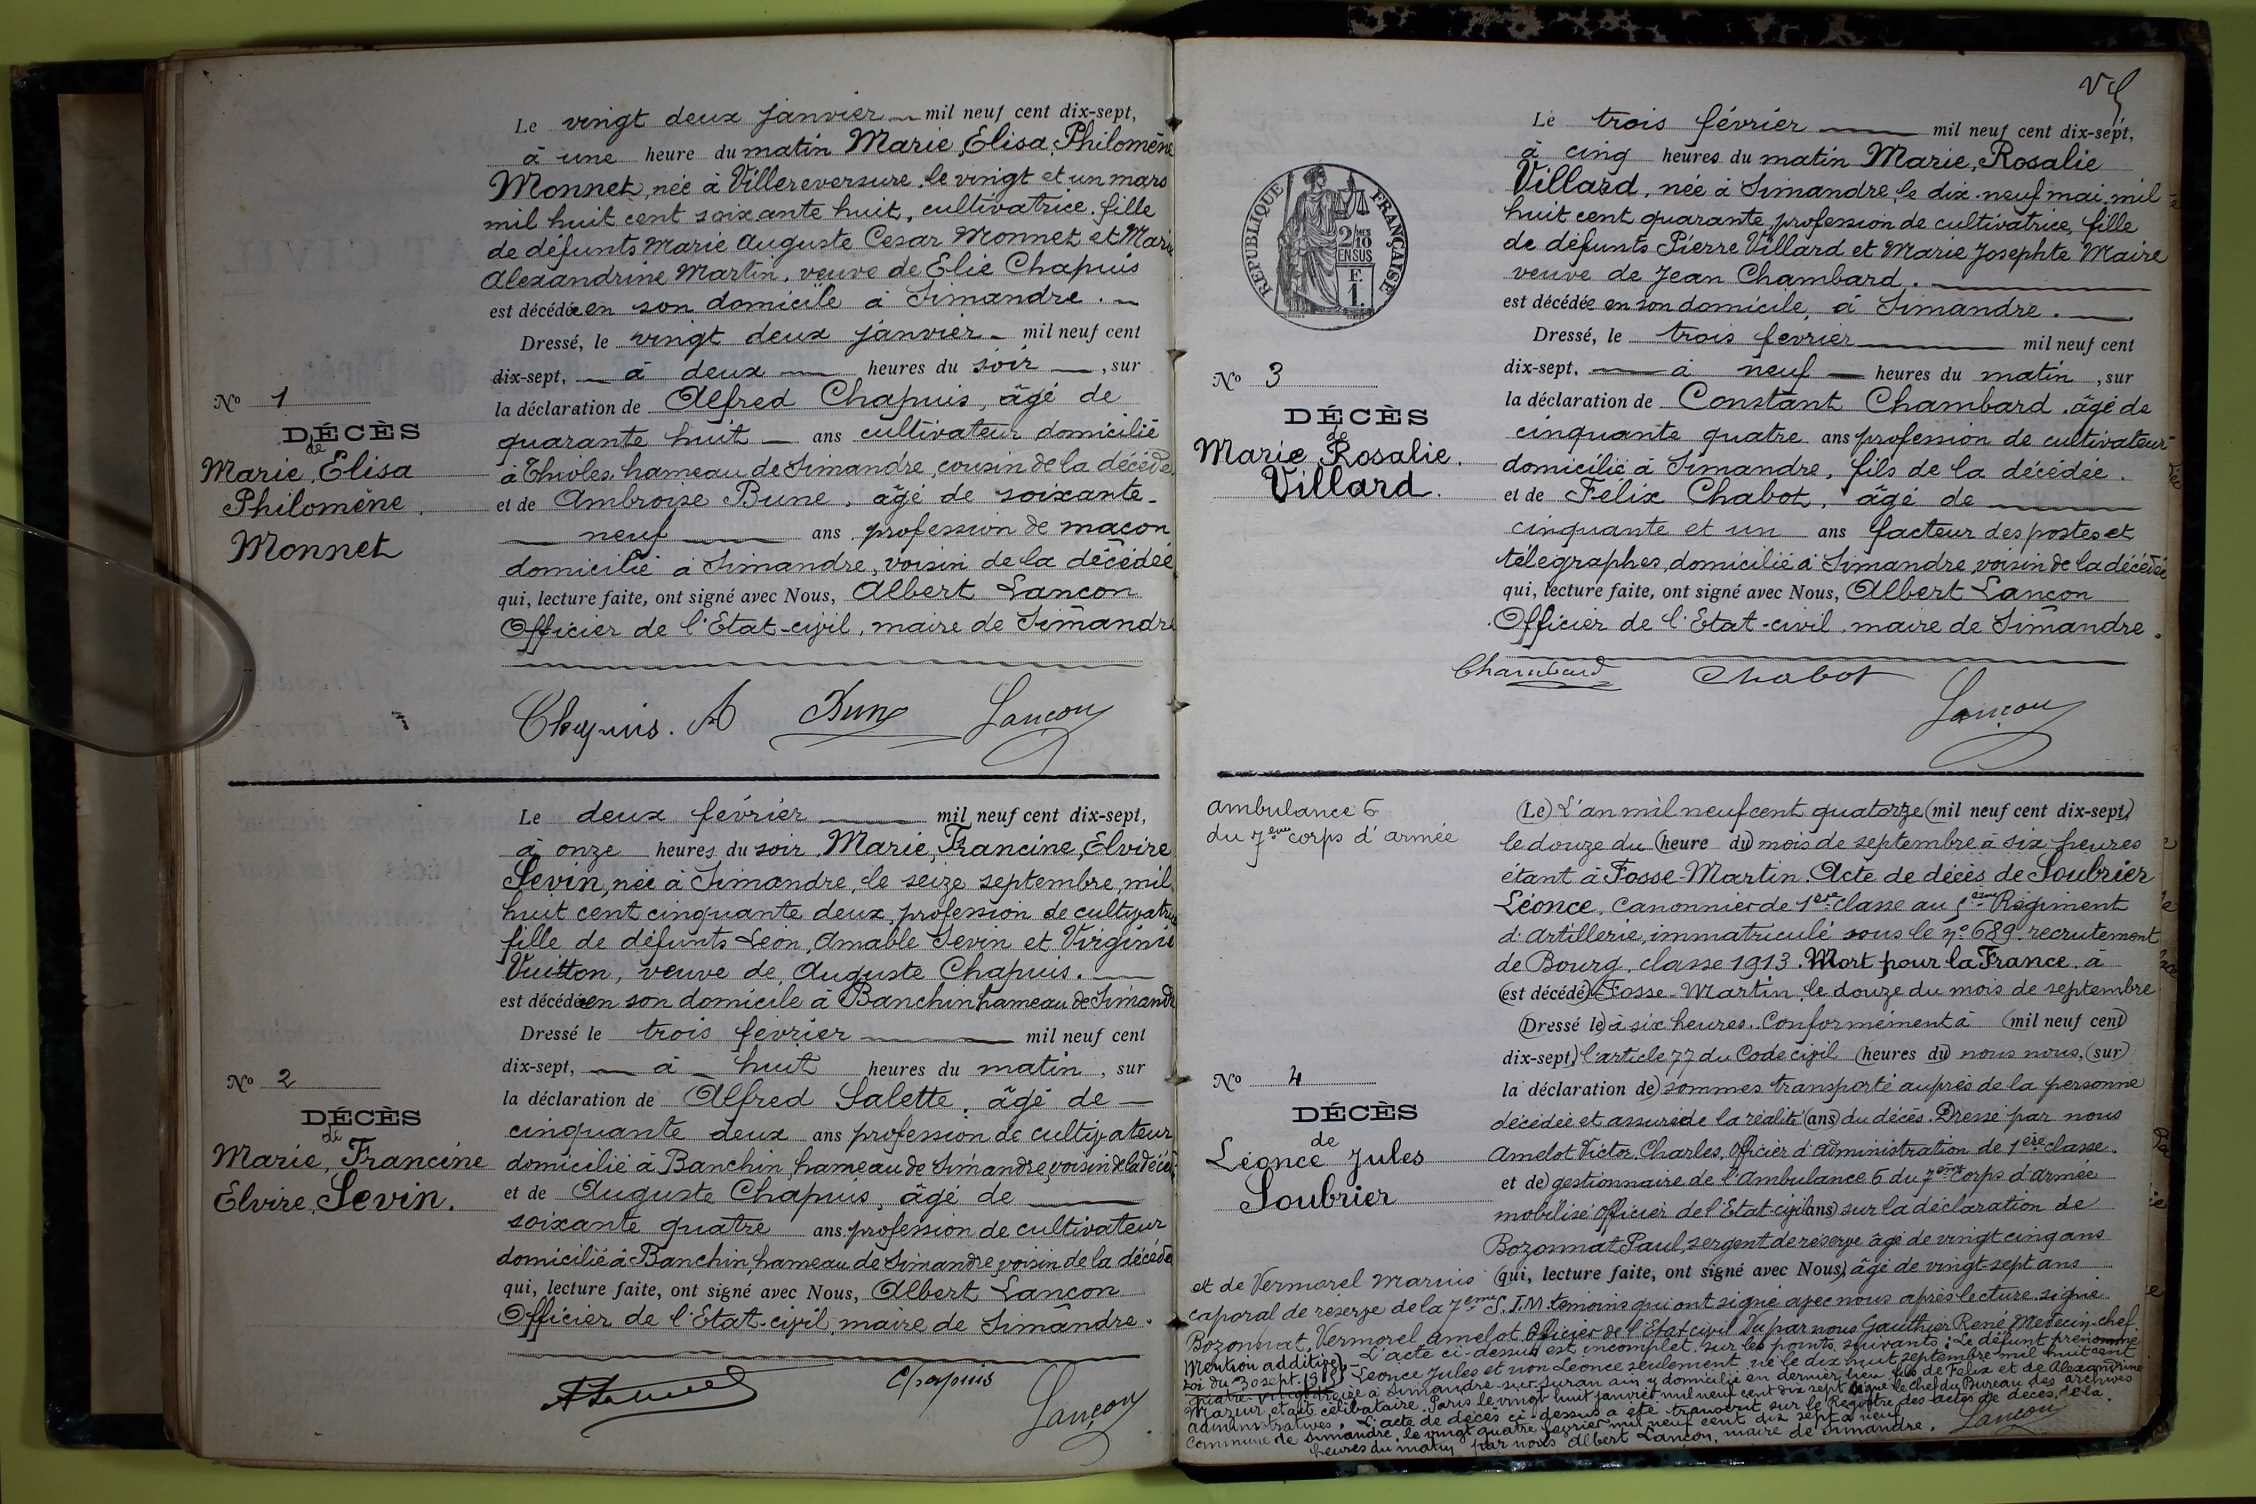 Le vingt deux janvier mil neuf cent dix-sept,
à une heure du matin Marie, Elisa, Philomène
Monnet, née à Villereversure, le vingt et un mars
mil huit cent soixante huit, cultivatrice, fille
de défunts Marie Auguste César Monnet et Marie
Alexandrine Martin, veuve de Elie Chapuis
est décédée en son domicile à Simandre.
Dressé, le vingt deux janvier mil neuf cent
dix-sept, à deux heures du soir, sur
la déclaration de Alfred Chapuis, âgé de
quarante huit ans cultivateur domicilié
à Thioles, hameau de Simandre, cousin de la décédée
et de Ambroise Bune, âgé de soixante-
neuf ans profession de maçon
domicilié à Simandre, voisin de la décédée
qui, lecture faite, ont signé avec Nous, Albert Lançon
Officier de l'Etat-civil, maire de Simandre
Nº 1
DÉCÈS
de
Marie, Elisa
Philomène,
Monnet
Chapuis. A Bune Lançon
Le deux février mil neuf cent dix-sept,
à onze heures du soir Marie, Francine, Elvire
Sevin, née à Simandre, le seize septembre, mil
huit cent cinquante deux, profession de cultivatrice
fille de défunts Léon, Amable Sevin et Virginie
Vuitton, veuve de Auguste Chapuis.
est décédée en son domicile à Banchin hameau de Simandre
Dressé le trois février mil neuf cent
dix-sept, à huit heures du matin, sur
la déclaration de Alfred Salette, âgé de
cinquante deux ans profession de cultivateur
domicilié à Banchin, hameau de Simandre, voisin de la décédée
et de Auguste Chapuis, âgé de
soixante quatre ans profession de cultivateur
domicilié à Banchin, hameau de Simandre, voisin de la décédée
qui, lecture faite, ont signé avec Nous, Albert Lançon
Officier de l'Etat-civil, maire de Simandre.
Nº 2
DÉCÈS
de
Marie, Francine
Elvire, Sevin.
Chapuis Lançon
RÉPUBLIQUE FRANÇAISE
2/10
EN SUS
F.
1.
Le trois février mil neuf cent dix-sept,
à cinq heures du matin Marie, Rosalie
Villard, née à Simandre, le dix-neuf mai, mil
huit cent quarante, profession de cultivatrice, fille
de défunts Pierre Villard et Marie Josephte Maire
veuve de Jean Chambard.
est décédée en son domicile, à Simandre.
Dressé, le trois février mil neuf cent
dix-sept, à neuf heures du matin, sur
la déclaration de Constant Chambard, âgé de
cinquante quatre ans profession de cultivateur
domicilié à Simandre, fils de la décédée.
et de Félix Chabot, âgé de
cinquante et un ans facteur des postes et
télégraphes, domicilié à Simandre, voisin de la décédée
qui, lecture faite, ont signé avec Nous, Albert Lançon
Officier de l'Etat-civil, maire de Simandre.
Nº 3
DÉCÈS
de
Marie Rosalie.
Villard.
Chambard Chabot
Lançon
ambulance 6
du 7ème corps d'armée
(Le) L'an mil neuf cent quatorze (mil neuf cent dix-sept)
le douze du (heure du) mois de septembre à six heures
étant à Fosse-Martin. Acte de décès de Soubrier
Léonce, canonnier de 1ère classe au 5ème Régiment
d'artillerie, immatriculé sous le nº 689. recrutement
de Bourg, classe 1913. Mort pour la France, à
(est décédé) Fosse-Martin, le douze du mois de septembre
(Dressé le) à six heures. Conformément à (mil neuf cent)
dix-sept) l'article 77 du Code civil (heures du) nous nous, (sur)
la déclaration de) sommes transporté auprès de la personne
décédée et assuré de la réalité (ans) du décès. Dressé par nous
Amelot Victor, Charles, Officier d'administration de 1ère classe,
et de) gestionnaire de l'Ambulance 6 du 7ème corps d'armée
mobilisé officier de l'Etat-civil (ans) sur la déclaration de
Bozonnat Paul, sergent de réserve âgé de vingt cinq ans
et de Vermorel Marius (qui, lecture faite, ont signé avec Nous) âgé de vingt-sept ans
caporal de réserve de la 7ème S.I.M. témoins qui ont signé avec nous après lecture. signé
Bozonnat, Vermorel, Amelot Officier de l'Etat civil Vu par nous Gauthier René, Médecin-chef
Nº 4
DÉCÈS
de
Léonce Jules
Soubrier
Mention additive
Loi du 30 sept. 1915
L'acte ci-dessus est incomplet, sur les points suivants: Le défunt prénommé
Léonce Jules et non Léonce seulement né le dix huit septembre mil huit cent
quatre vingt treize à Simandre-sur-Suran Ain y domicilié en dernier lieu fils de Félix et de Alexandrine
Mazuir était célibataire. Paris le vingt huit janvier mil neuf cent dix sept signé le Chef du Bureau des archives
administratives. L'acte de décès ci-dessus a été transcrit sur le Registre des actes de décès, de la
Commune de Simandre, le vingt quatre février mil neuf cent dix sept à neuf
heures du matin par nous Albert Lançon, maire de Simandre. Lançon